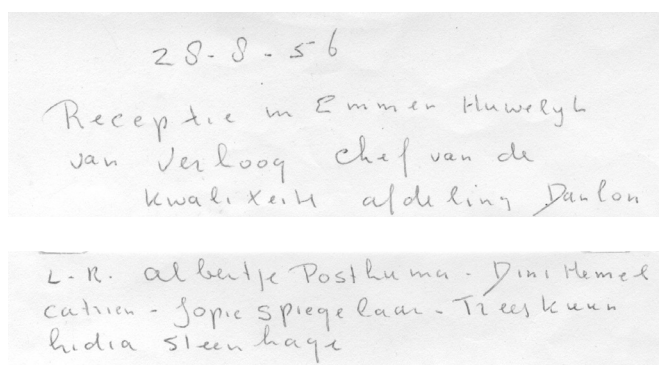 28-8-56
Receptie in Emmen Huwelyk
van Verloog chef van de
kwaliteits afdeling Danlon
L-R. albertje Posthuma - Dini Hemel
catrien - Jopie spiegelaar - Trees kuun
lidia steenhage